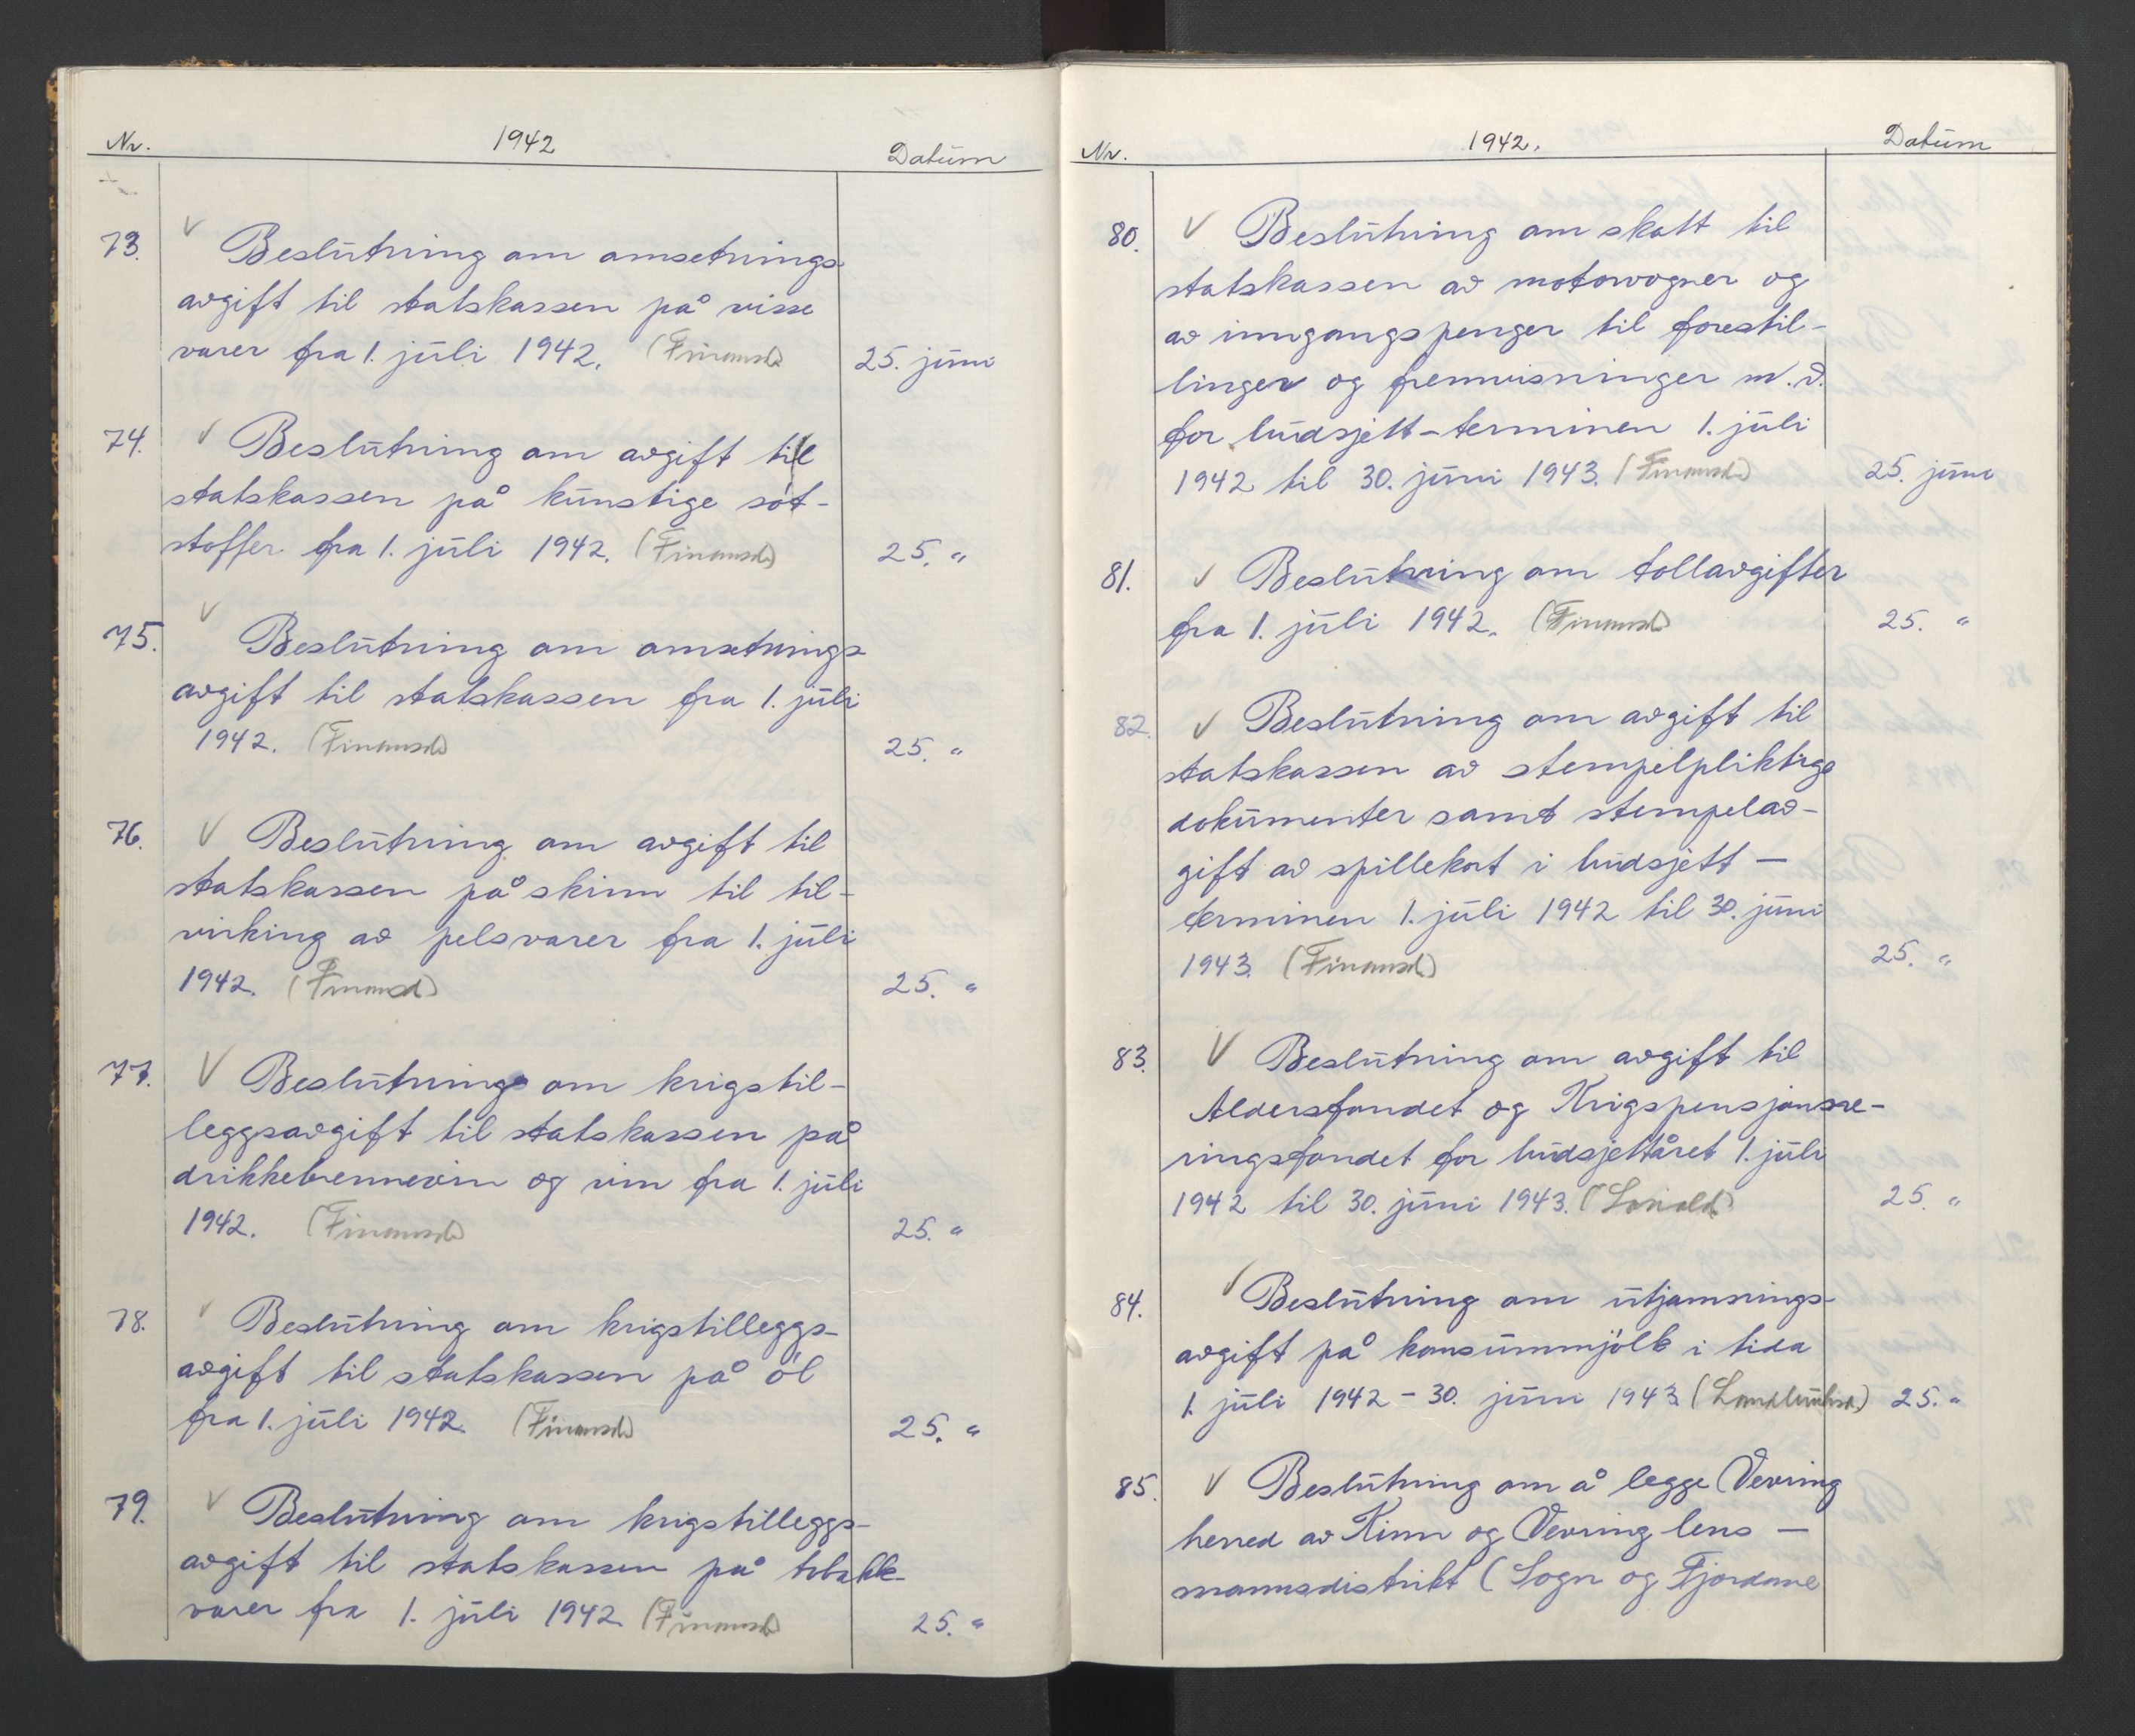 Nr. 1942 Datum
73. Beslutning om omsetnings-
avgift til statskassen på visse
varer fra 1. juli 1942. (Finansd.) 25. juni
74. Beslutning om avgift til
statskassen på kunstige søt-
stoffer fra 1. juli 1942. (Finansd.) 25. "
75. Beslutning om omsetnings-
avgift til statskassen fra 1. juli
1942. (Finansd.) 25. "
76. Beslutning om avgift til
statskassen på skinn til til-
virking av pelsvarer fra 1. juli
1942. (Finansd.) 25. "
77. Beslutning om krigstil-
leggsavgift til statskassen på
drikkebrennevin og vin fra 1. juli
1942. (Finansd.) 25. "
78. Beslutning om krigstilleggs-
avgift til statskassen på øl
fra 1. juli 1942. (Finansd.) 25. "
79. Beslutning om krigstilleggs-
avgift til statskassen på tobakk-
varer fra 1. juli 1942. (Finansd.) 25. "
Nr. 1942. Datum
80. Beslutning om skatt til
statskassen av motorvogner og
av inngangspenger til forestil-
linger og fremvisninger m.v.
for budsjett-terminen 1. juli
1942 til 30. juni 1943. (Finansd.) 25. juni
81. Beslutning om tollavgifter
fra 1. juli 1942. (Finansd.) 25. "
82. Beslutning om avgift til
statskassen av stempelpliktige
dokumenter samt stempelav-
gift av spillekort i budsjett-
terminen 1. juli 1942 til 30. juni
1943. (Finansd.) 25. "
83. Beslutning om avgift til
Aldersfondet og Krigspensjonse-
ringsfondet for budsjettåret 1. juli
1942 til 30. juni 1943. (Sosiald.) 25. "
84. Beslutning om utjamnings-
avgift på konsummjølk i tida
1. juli 1942 - 30. juni 1943 (Landbruksd.) 25. "
85. Beslutning om å legge Vevring
herred av Kinn og Vevring lens-
mannsdistrikt (Sogn og Fjordane